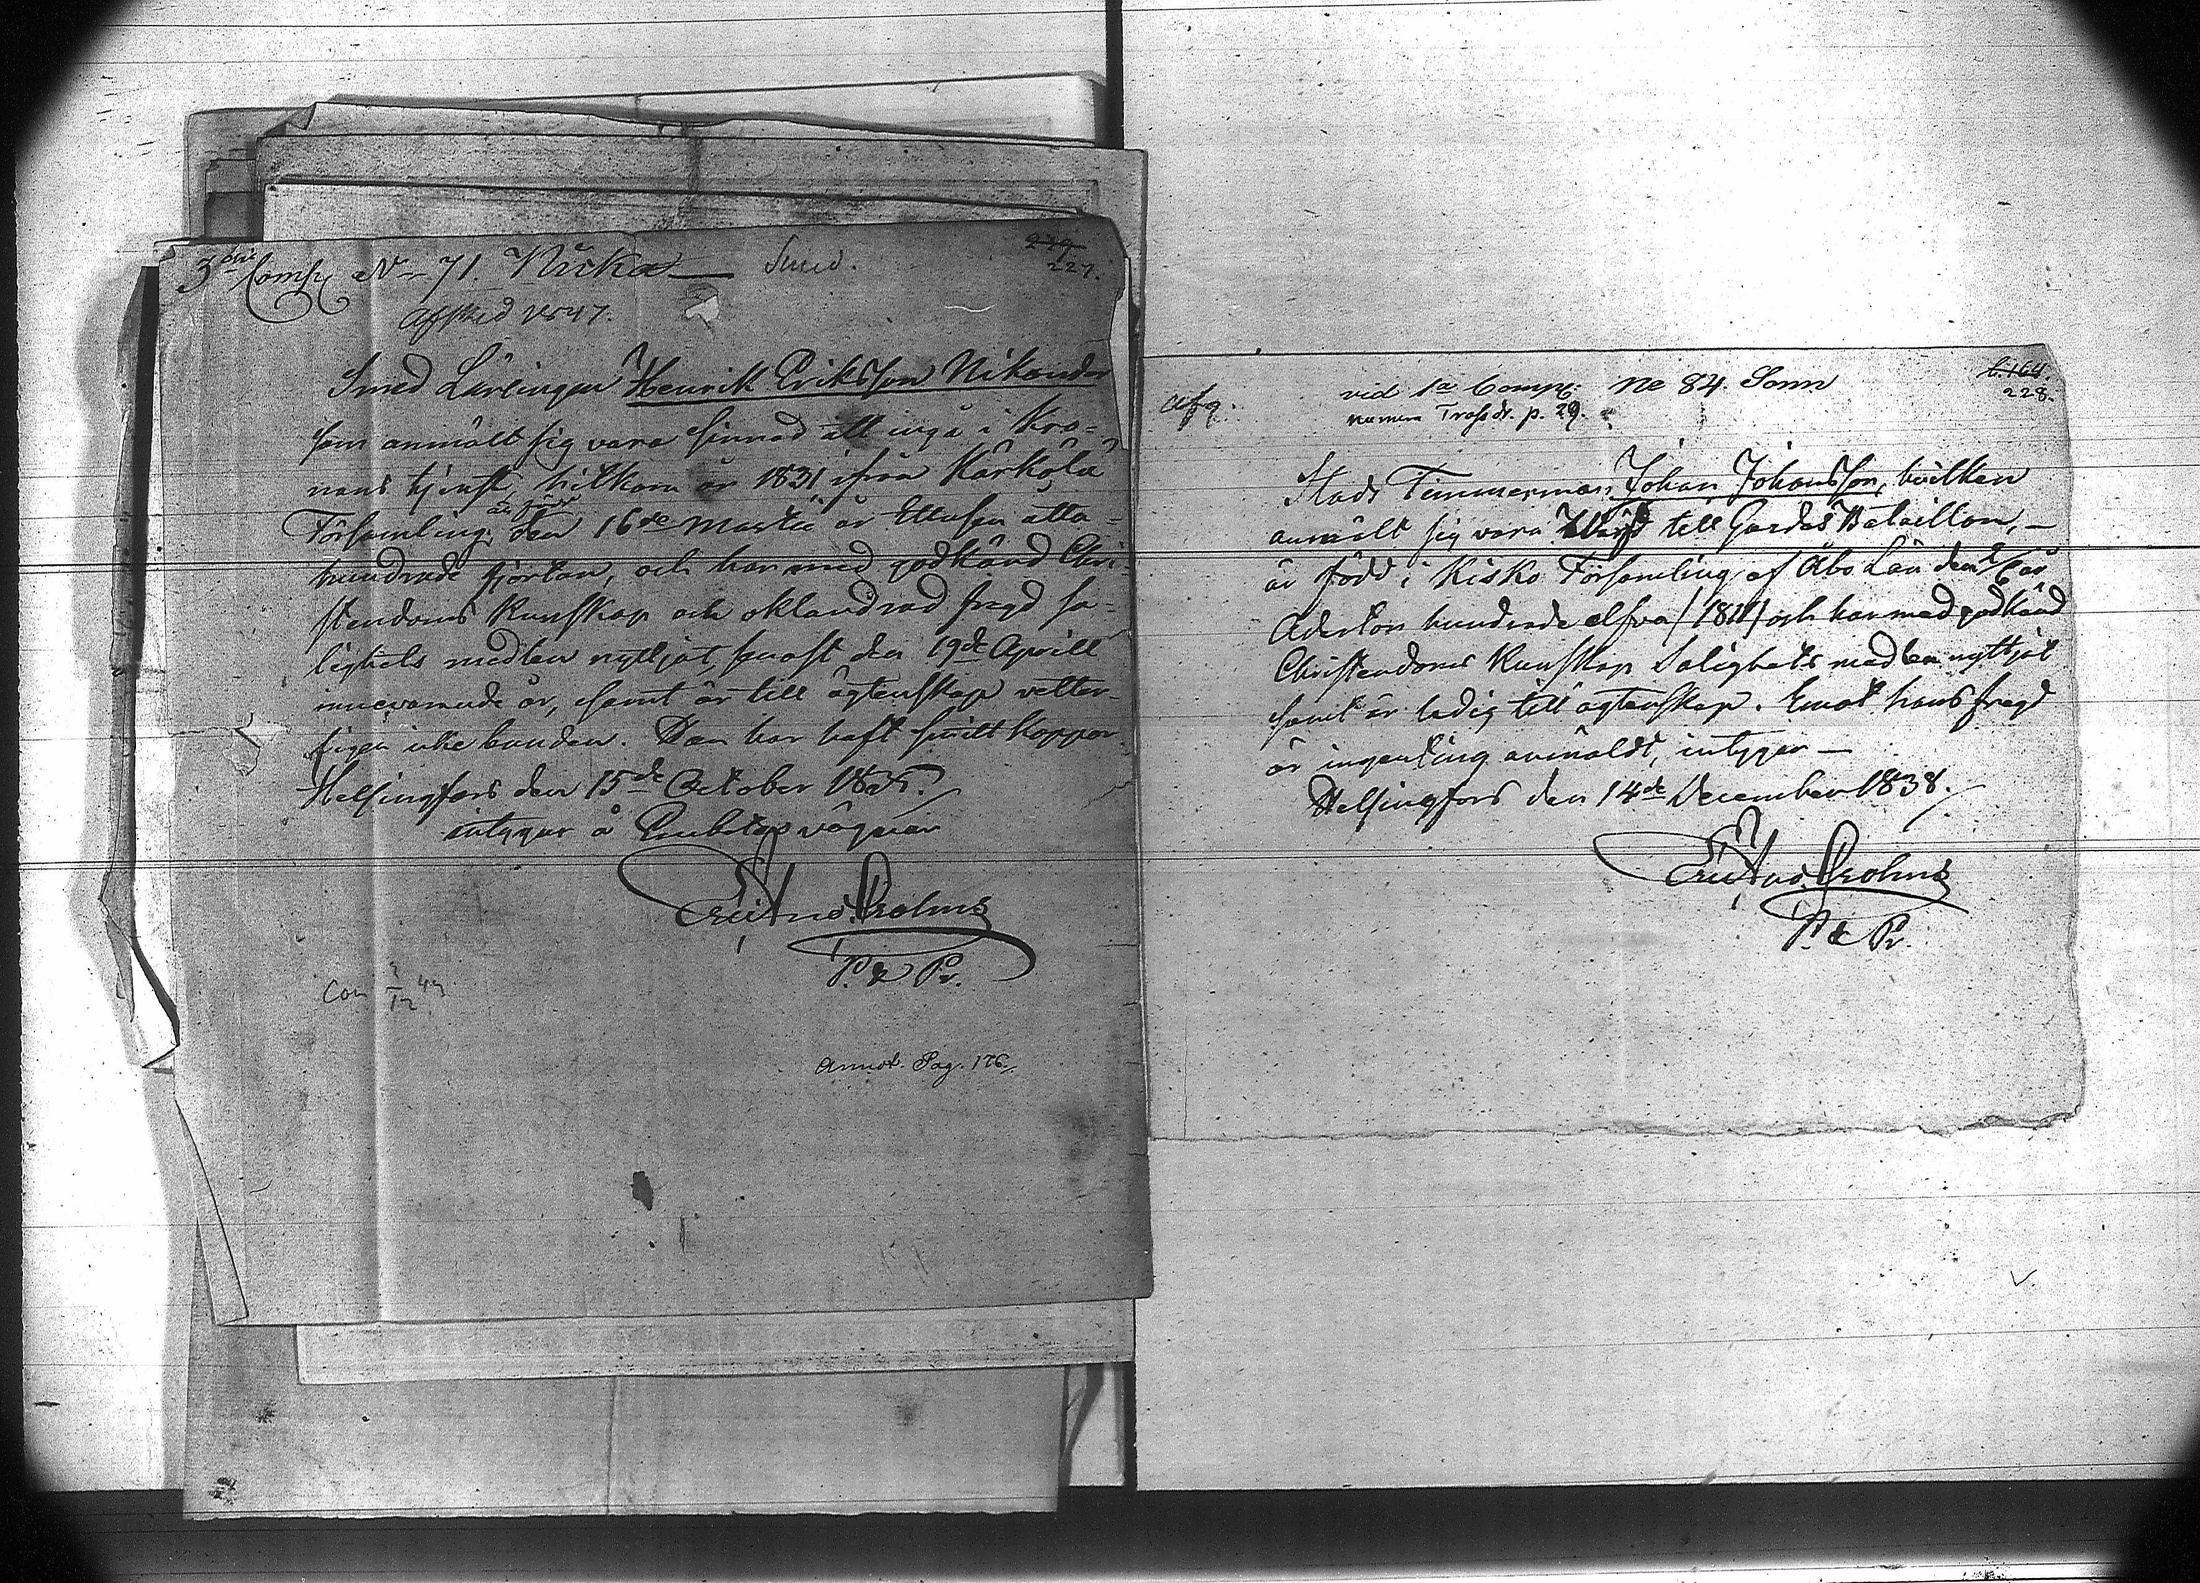 3die Comp: No 71. Nicka — Smed.
229
227.
Afsked 1847.
Smed Lärlingen Henrik Eriksson Nikander
som anmält sig vara sinnad att ingå i Kro-
nans tjenst, hitkom år 1831 ifrån Kärkölä
är född
Församling, den 16de Martii år Ettusen åtta-
hundrade fjorton, och har med godkänd Chri-
stendoms Kunskap och oklandrad fregd sa-
lighets medlen nyttjat, senast den 19de Aprill
innevarande år, samt är till ägtenskap vetter-
ligen icke bunden. Han har haft smittkoppor.
Helsingfors den 15de October
intygar å Embetes vägnar
Gust. And. Prolms
P. & Pr.
Con 47
Annot. Pag. 176.
Afg.
vid 1a Comp: No 84. Sonn
numera Trossdr. p. 29.
b. 164.
228.
Stads Timmerman Johan Johansson, hvilken
anmält sig vara till Gardes Bataillon, —
är född i Kisko Församling af Åbo Län den år
Aderton hundrade elfva (1811) och har med godkänd
Christendoms Kunskap Salighets medlen nyttjat
samt är ledig till ägtenskap. Emot hans fregd
är ingenting anmäldt, intygar —
Helsingfors den 14de December 1838.
Gust. And. Prolms
P. & Pr.